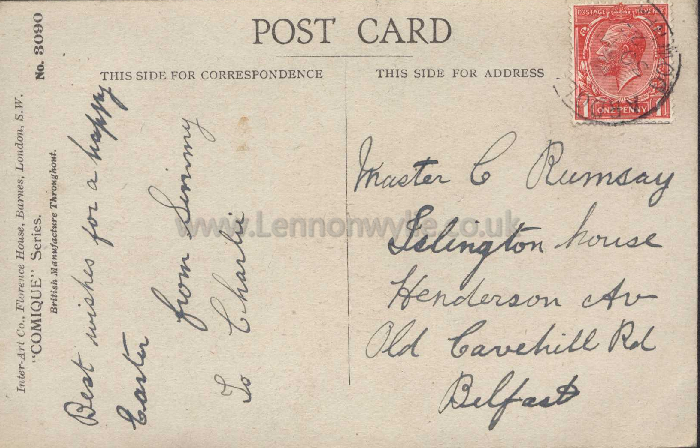 POST CARD
THIS SIDE FOR CORRESPONDENCE
THIS SIDE FOR ADDRESS
No. 3090
Inter-Art Co., Florence House, Barnes, London, S.W.
"COMIQUE" Series.
British Manufacture Throughout.
Best wishes for a happy
Easter
from Jimmy
To Charlie
Master C Rumsay
Islington house
Henderson Av
Old Cavehill Rd
Belfast
POSTAGE
1 ONE PENNY 1
www.Lennonwylie.co.uk